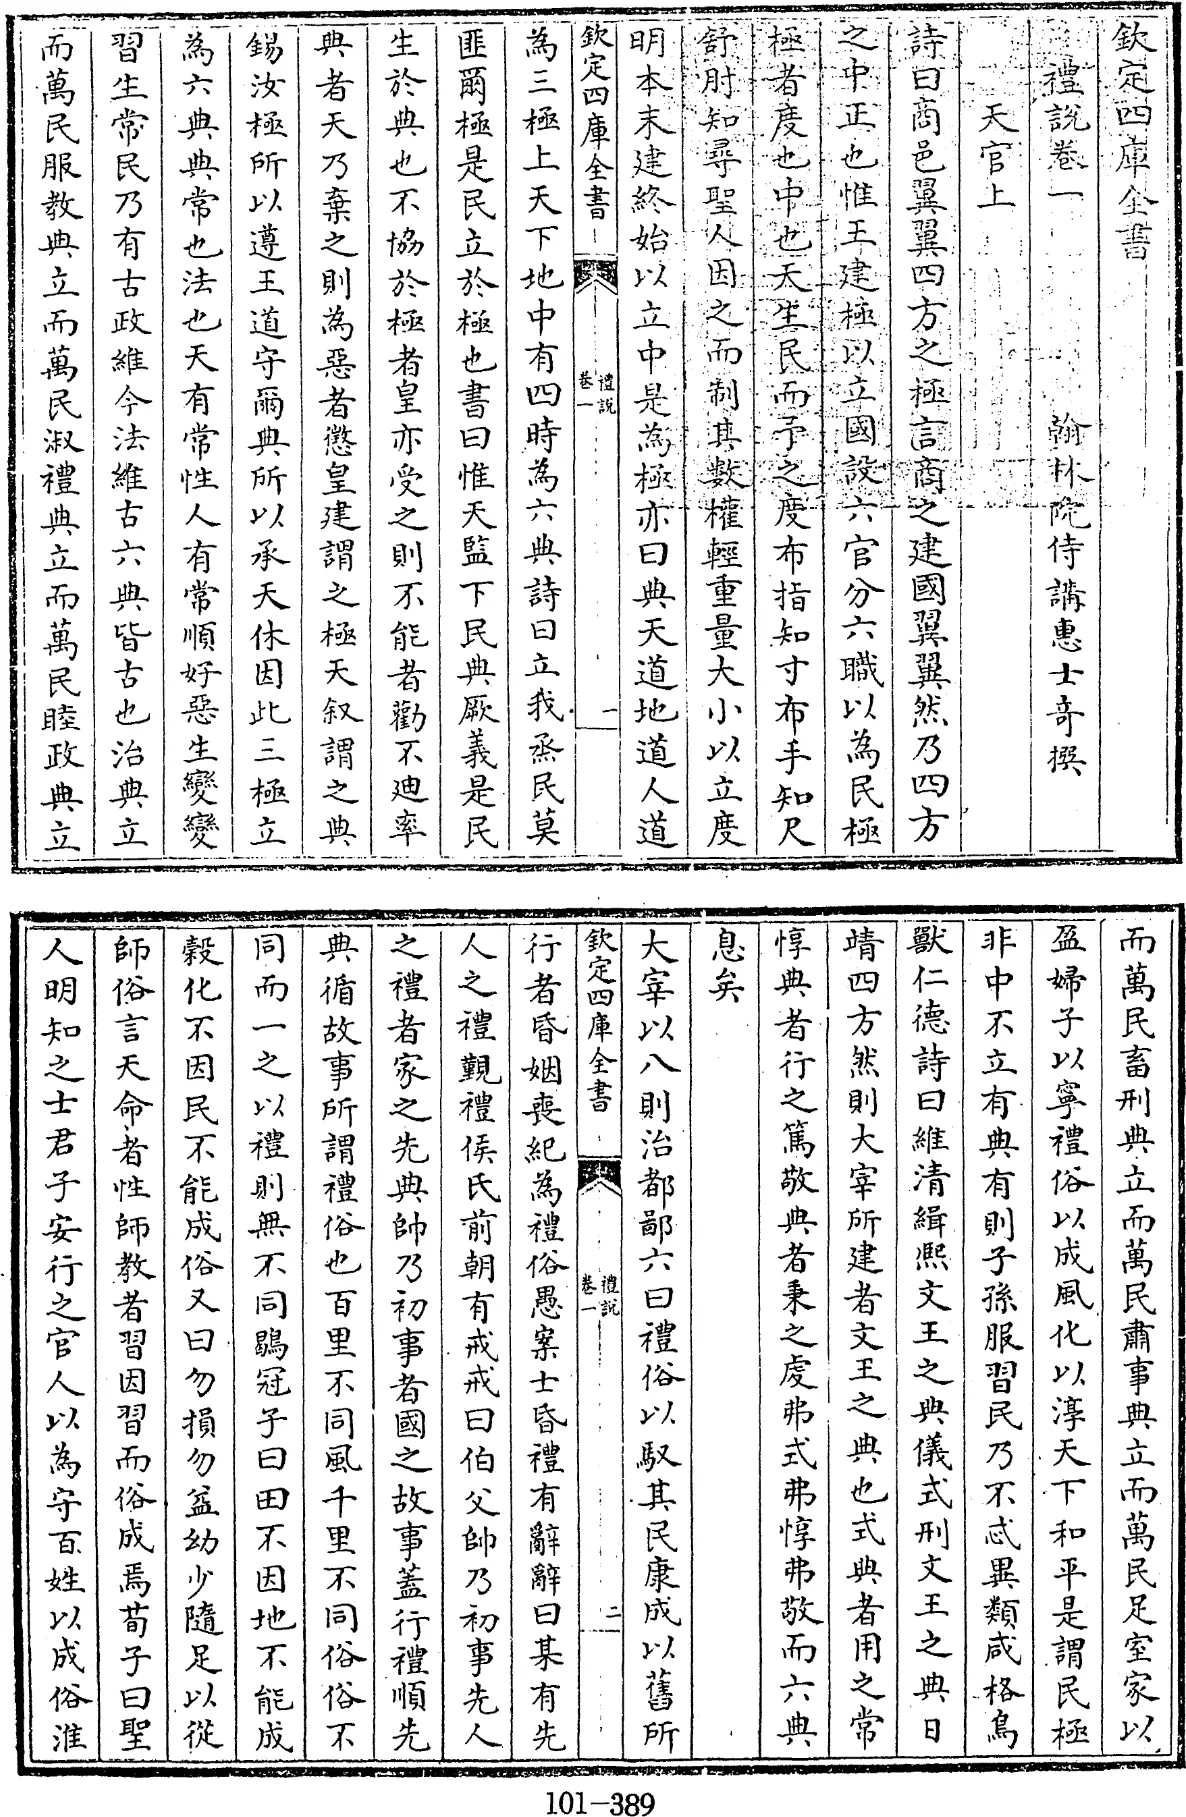 欽定四庫全書
禮說卷一
翰林院侍講惠士奇撰
天官上
詩曰商邑翼翼四方之極言商之建國翼翼然乃四方
之中正也惟王建極以立國設六官分六職以為民極
極者度也中也天生民而予之度布指知寸布手知尺
舒肘知尋聖人因之而制其數權輕重量大小以立度
明本末建終始以立中是為極亦曰典天道地道人道
欽定四庫全書
禮說
卷一
一
為三極上天下地中有四時為六典詩曰立我烝民莫
匪爾極是民立於極也書曰惟天監下民典厥義是民
生於典也不協於極者皇亦受之則不能者勸不迪率
典者天乃棄之則為惡者懲皇建謂之極天叙謂之典
錫汝極所以遵王道守爾典所以承天休因此三極立
為六典典常也法也天有常性人有常順好惡生變變
習生常民乃有古政維今法維古六典皆古也治典立
而萬民服教典立而萬民淑禮典立而萬民睦政典立
而萬民畜刑典立而萬民肅事典立而萬民足室家以
盈婦子以寧禮俗以成風化以淳天下和平是謂民極
非中不立有典有則子孫服習民乃不忒異類咸格鳥
獸仁德詩曰維清緝熙文王之典儀式刑文王之典日
靖四方然則大宰所建者文王之典也式典者用之常
惇典者行之篤敬典者秉之虔弗式弗惇弗敬而六典
息矣
大宰以八則治都鄙六曰禮俗以馭其民康成以舊所
欽定四庫全書
禮說
卷一
二
行者昏姻喪紀為禮俗愚案士昏禮有辭辭曰某有先
人之禮觀禮侯氏前朝有戒戒曰伯父帥乃初事先人
之禮者家之先典帥乃初事者國之故事蓋行禮順先
典循故事所謂禮俗也百里不同風千里不同俗俗不
同而一之以禮則無不同鶡冠子曰田不因地不能成
穀化不因民不能成俗又曰勿損勿益幼少隨足以從
師俗言天命者性師教者習因習而俗成焉荀子曰聖
人明知之士君子安行之官人以為守百姓以成俗淮
101-389